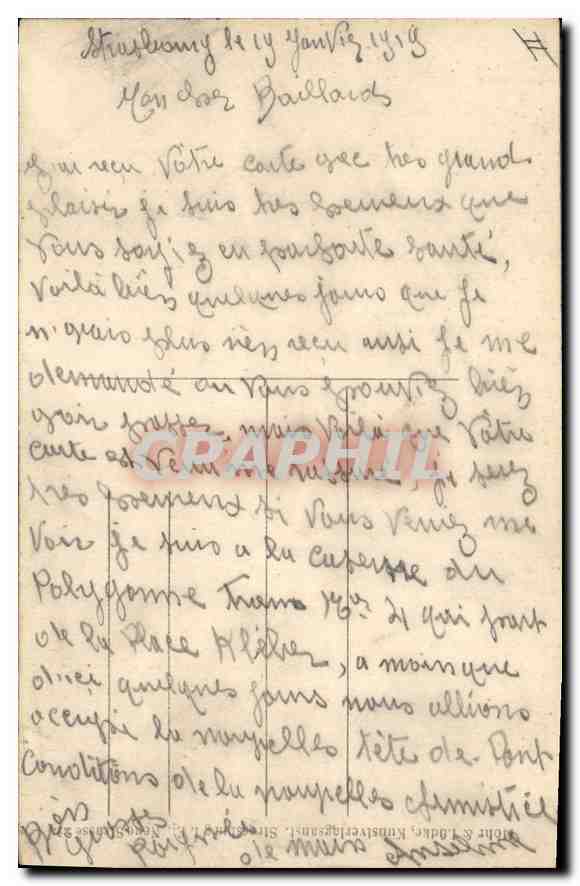 Strasbourg le 19 Janvier 1919
Mon cher Baillard
J'ai reçu Vôtre carte avec tres grand
plaisir je suis tres heureux que
vous soyiez en parfaite santé,
Voilà bien quelques jours que je
n'avais plus rien reçu aussi je me
demandé ou vous pouviez bien
avoir passer, mais Voilà que Vôtre
carte est venu me rassuré, je serez
tres heureux si vous veniez me
Voir je suis a la caserne du
Polygonne Tram No 4 qui part
de la Place Kléber, a moins que
d'ici quelques jours nous allions
occupé la nouvelles tête de Pont
Conditions de la nouvelles Armistice
Bien
poignée
de mains Anselme
CRAPHIL
Mohr & Lüdke, Kunstverlagsanst. Strassburg i. E., Neue Strasse